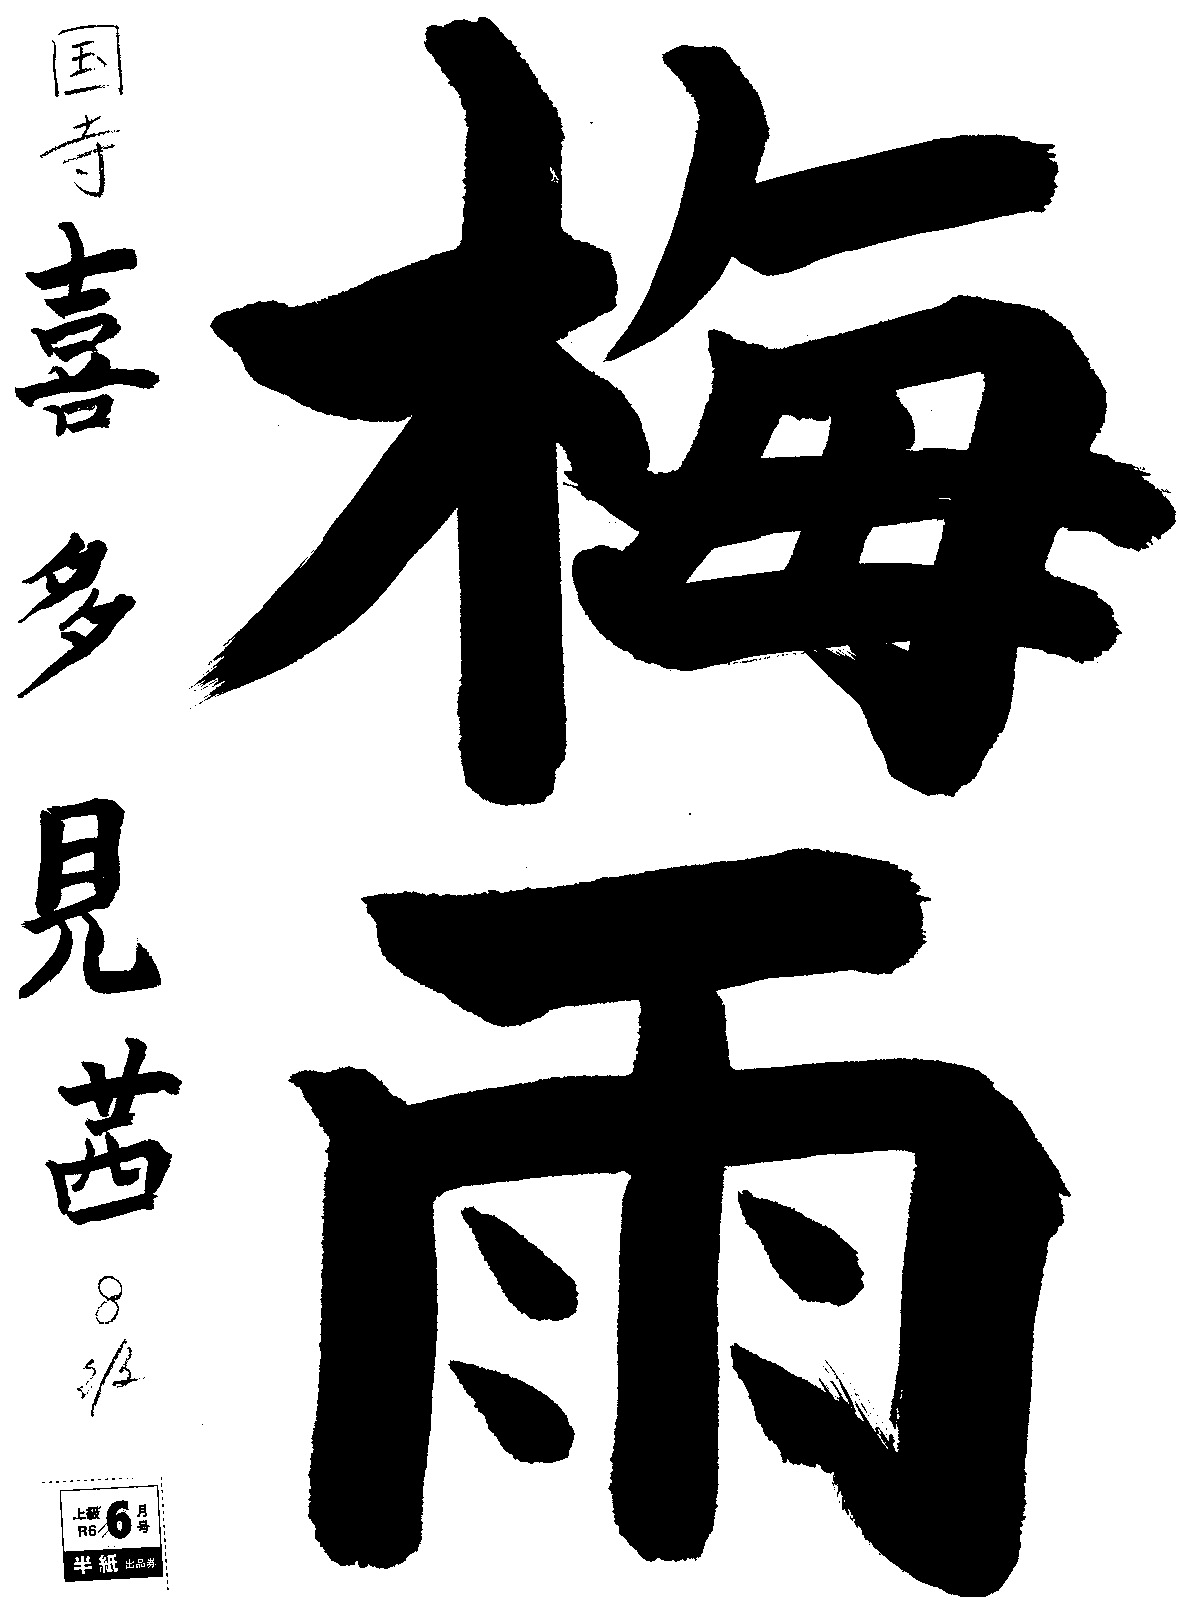 梅雨
国寺 喜多見茜 8級
上級 R6/6月号
半紙 出品券